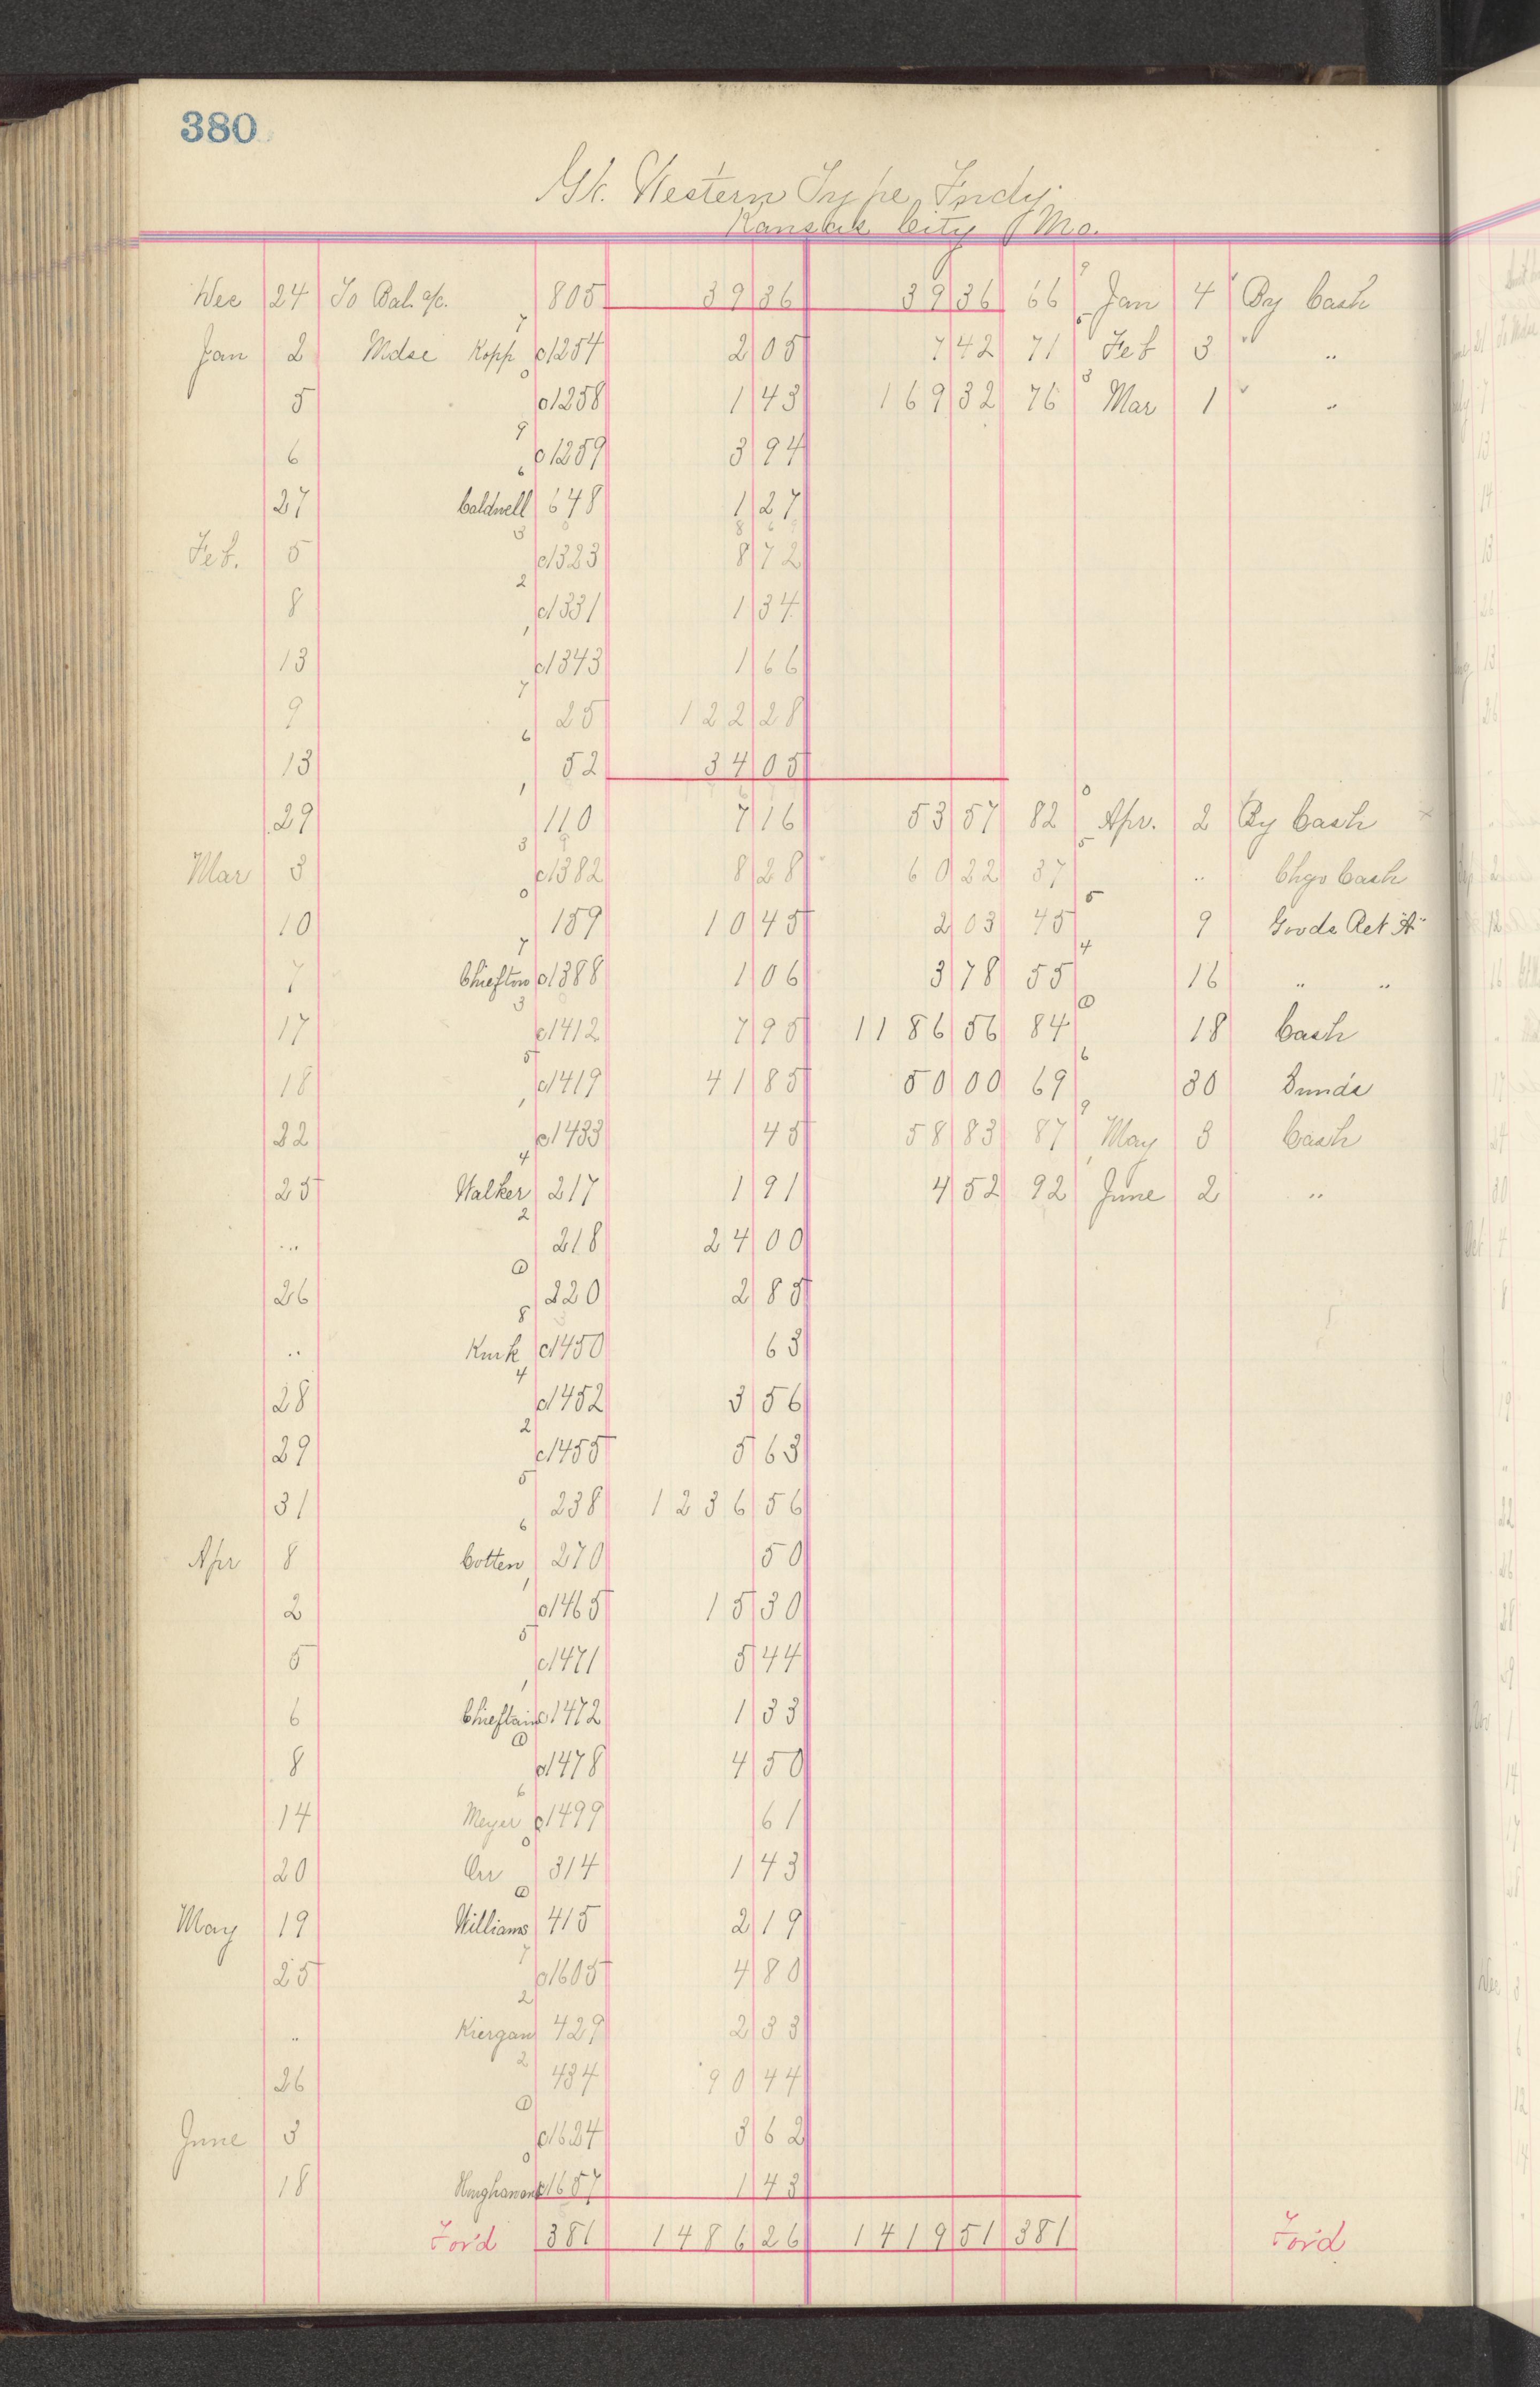 380
Gt. Western Type Fndy.
Kansas City Mo.
Dec 24 To Bal. a/c. 805 39 36 39 36 66 Jan 4 By Cash
Jan 2 Mdse Kopp c1254 2 05 7 42 71 Feb 3 " "
5 c1258 1 43 169 32 76 Mar 1 " "
6 c1259 3 94
27 Caldwell 648 1 27
Feb. 5 c1323 8 72
8 c1331 1 34
13 c1343 1 66
9 25 122 28
13 52 34 05
29 110 7 16 53 57 82 Apr. 2 By Cash
Mar 3 c1382 8 28 60 22 37 " Chgo Cash
10 159 10 45 2 03 45 9 Goods Ret "A"
7 Chiefton c1388 1 06 3 78 55 16 " "
17 c1412 7 95 1186 56 84 18 Cash
18 c1419 41 85 50 00 69 30 Sunds
22 c1433 45 58 83 87 May 3 Cash
25 Walker 217 1 91 4 52 92 June 2 "
" 218 24 00
26 220 2 85
" Kurk c1450 63
28 c1452 3 56
29 c1455 5 63
31 238 1236 56
Apr 8 Cotten 270 50
2 c1465 15 30
5 c1471 5 44
6 Chieftain c1472 1 33
8 c1478 4 50
14 Meyer c1499 61
20 Orr 314 1 43
May 19 Williams 415 2 19
25 c1605 4 80
" Kiergan 429 2 33
26 434 90 44
June 3 c1624 3 62
18 c1657 1 43
For'd 381 1486 26 1419 51 381 For'd